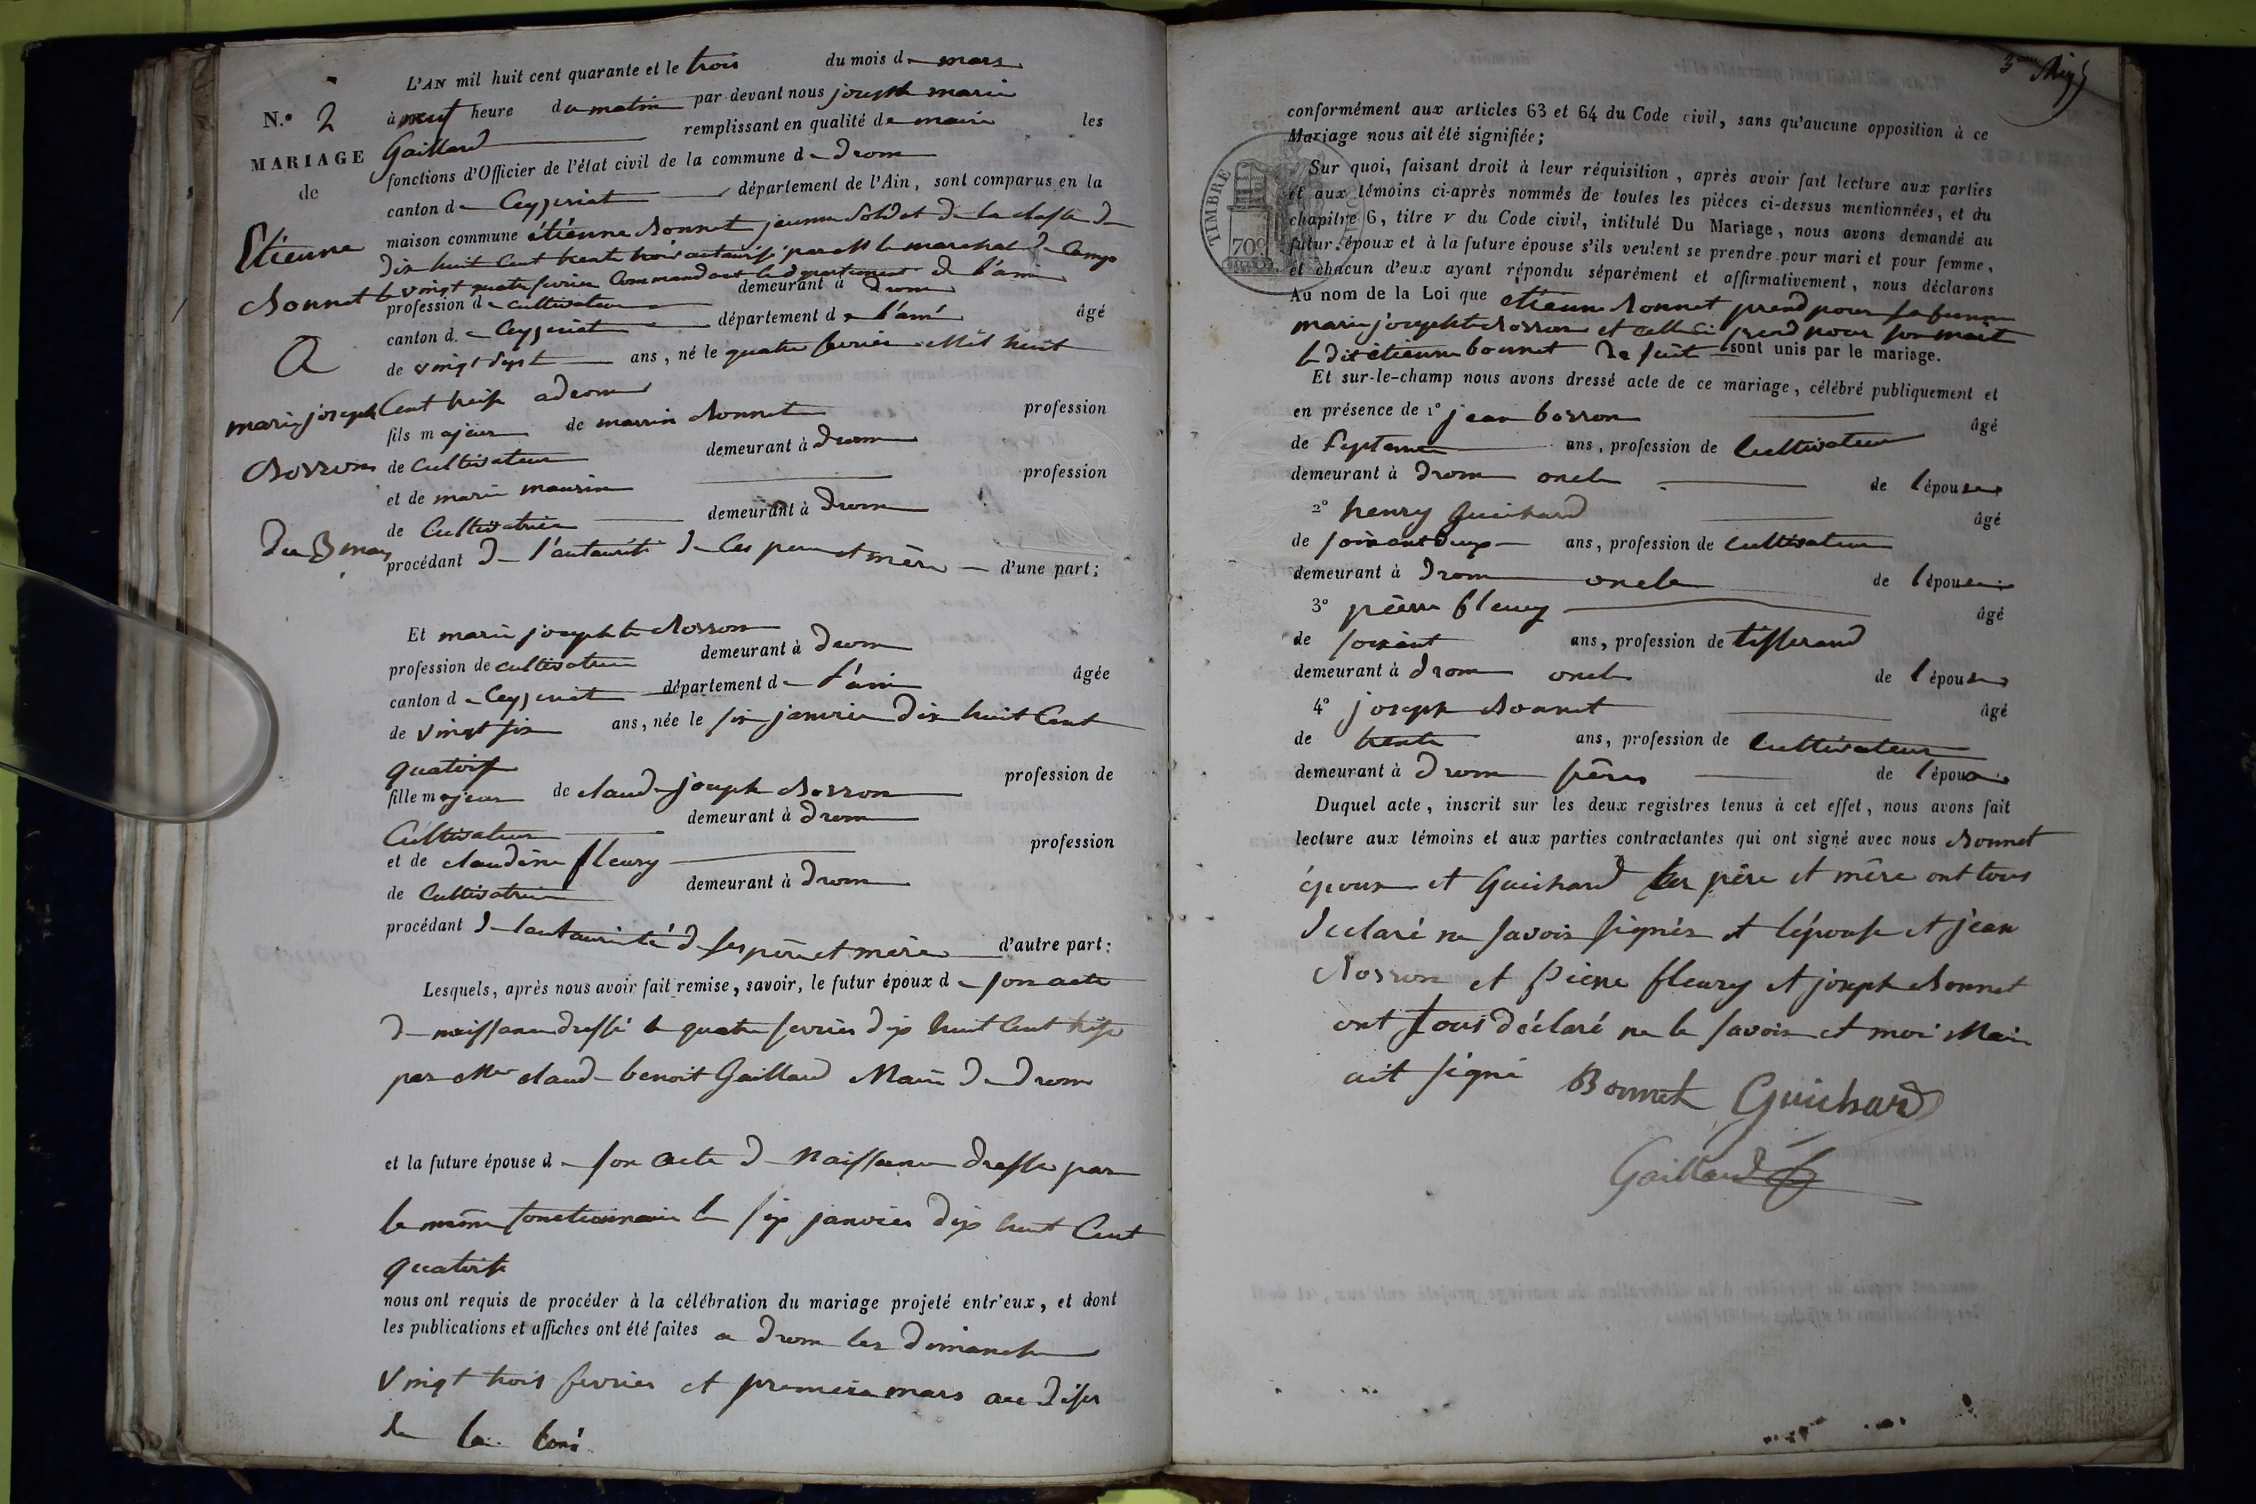 L'AN mil huit cent quarante et le trois du mois de mars
N.° 2
à neuf heure du matin par devant nous joseph marie
Gaillard remplissant en qualité de maire les
MARIAGE
fonctions d'Officier de l'état civil de la commune de drom
de
canton de Ceyzeriat département de l'Ain, sont comparus en la
maison commune étiénne Bonnet jeunne Soldat de la classe de
Etienne
dix huit Cent trente trois autaurisé par Mr le marechal de Camp
Bonnet
le vingt quatre fevrier Commandant le département de l'ain
profession de cultivateur demeurant à drom
canton de Ceyzeriat département de l'ain âgé
A
de vingt sept ans, né le quatre fevrier Mil huit
Cent treise a drom
marie joseph
fils majeur de marrin Bonnet profession
Borron
de Cultivateur demeurant à drom
et de marie maurin profession
de Cultivatrice demeurant à drom
du 3 mars
procédant de l'autaurité de Ces pere et mère d'une part;
Et marie josephte Borron
profession de cultivateur demeurant à drom
canton de Ceyzeriat département de l'ain âgée
de vingt six ans, née le six janvier dix huit Cent
quatorse
fille majeur de claude joseph Borron profession de
Cultivateur demeurant à drom
et de claudine fleury profession
de Cultivatrice demeurant à drom
procédant de lautaurité de ses père et mère d'autre part:
Lesquels, après nous avoir fait remise, savoir, le futur époux de son acte
de naissance dressé le quatre fevrier dix huit Cent treise
par Mr claude benoit Gaillard Maire de drom
et la future épouse de son acte de Naissance dresse par
le même fonctionnaire le six janvier dix huit Cent
quatorse
nous ont requis de procéder à la célébration du mariage projeté entr'eux, et dont
les publications et affiches ont été faites a drom les dimanche
vingt trois fevrier et premiere mars au desir
de la loné
3eme
conformément aux articles 63 et 64 du Code civil, sans qu'aucune opposition à ce
Mariage nous ait été signifiée;
TIMBRE
70c
Sur quoi, faisant droit à leur réquisition, après avoir fait lecture aux parties
et aux témoins ci-après nommés de toutes les pièces ci-dessus mentionnées, et du
chapitre 6, titre v du Code civil, intitulé Du Mariage, nous avons demandé au
futur époux et à la future épouse s'ils veulent se prendre pour mari et pour femme,
et chacun d'eux ayant répondu séparément et affirmativement, nous déclarons
Au nom de la Loi que etienne Bonnet prend pour sa femme
marie josephte Borron et celle ci prend pour son mari
le dit étienne bonnet de suit sont unis par le mariage.
Et sur-le-champ nous avons dressé acte de ce mariage, célébré publiquement et
en présence de 1° jean borron âgé
de septente ans, profession de Cultivateur
demeurant à drom oncle de l'épouse
2° henry Guichard âgé
de soixant deux ans, profession de Cultivateur
demeurant à drom oncle de l'épouse
3° pierre fleury âgé
de soixant ans, profession de tisserand
demeurant à drom oncle de l'épouse
4° joseph Bonnet âgé
de trente ans, profession de Cultivateur
demeurant à drom frère de l'époux
Duquel acte, inscrit sur les deux registres tenus à cet effet, nous avons fait
lecture aux témoins et aux parties contractantes qui ont signé avec nous Bonnet
époux et Guichard les père et mère ont tous
declaré ne savoir signér et lépouse et jean
Borron et Pierre fleury et joseph Bonnet
ont tous déclaré ne le savoir et moi Maire
ait signé Bonnet Guichard
Gaillard